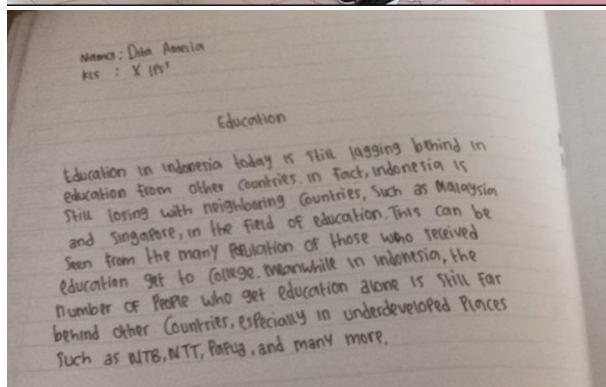 Nama : Dita Amelia
Kls : X IPS¹
Education
Education in indonesia today is still lagging behind in
education from other countries. in fact, indonesia is
still losing with neighboring countries, such as malaysia
and singapore, in the field of education. This can be
seen from the many Population of those who received
education get to college. meanwhile in indonesia, the
number of People who get education alone is still far
behind other countries, especially in underdeveloped Places
such as NTB, NTT, Papua, and many more.